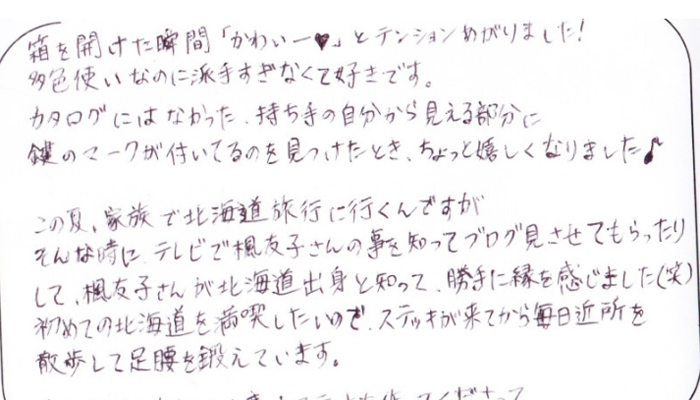 箱を開けた瞬間「かわいー♥」とテンションめがりました!
多色使いなのに派手すぎなくて好きです。
カタログにはなかった、持ち手の自分から見える部分に
鍵のマークが付いてるのを見つけたとき、ちょっと嬉しくなりました♪
この夏、家族で北海道旅行に行くんですが
そんな時に、テレビで楓友子さんの事を知ってブログ見させてもらったり
して、楓友子さんが北海道出身と知って、勝手に縁を感じました(笑)
初めての北海道を満喫したいので、ステッキが来てから毎日近所を
散歩して足腰を鍛えています。